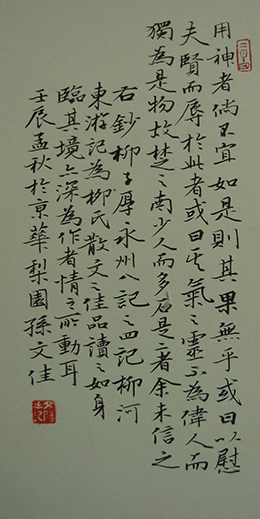 用神者倘不宜如是則其果無乎或曰以慰
夫賢而辱於此者或曰其氣之靈不為偉人而
獨為是物故楚之南少人而多石是二者余未信之
右鈔柳子厚永州八記之四記柳河
東游記為柳氏散文之佳品讀之如身
臨其境亦深為作者情之所動耳
壬辰孟秋於京華梨園孫文佳